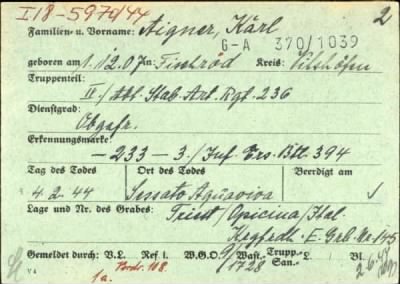 I18-5970/44 2
Familien- u. Vorname: Aigner, Karl
G-A 370/1039
geboren am 1.12.07 in: Fischröd Kreis: Vilshofen
Truppenteil:
II/Abt. Stab Art. Rgt. 236
Dienstgrad:
Obgefr.
Erkennungsmarke:
-233-3./Inf. Ers. Btl. 394
Tag des Todes Ort des Todes Beerdigt am
4.2.44 Sessato Aquaviva
Lage und Nr. des Grabes: Triest/Opicina/Ital.
E. Grb. Nr. 145
Gemeldet durch: V.L. Ref i. W.G.O. Wast.- Trupp.- San.- L. Bl.
1728
V4 1a.